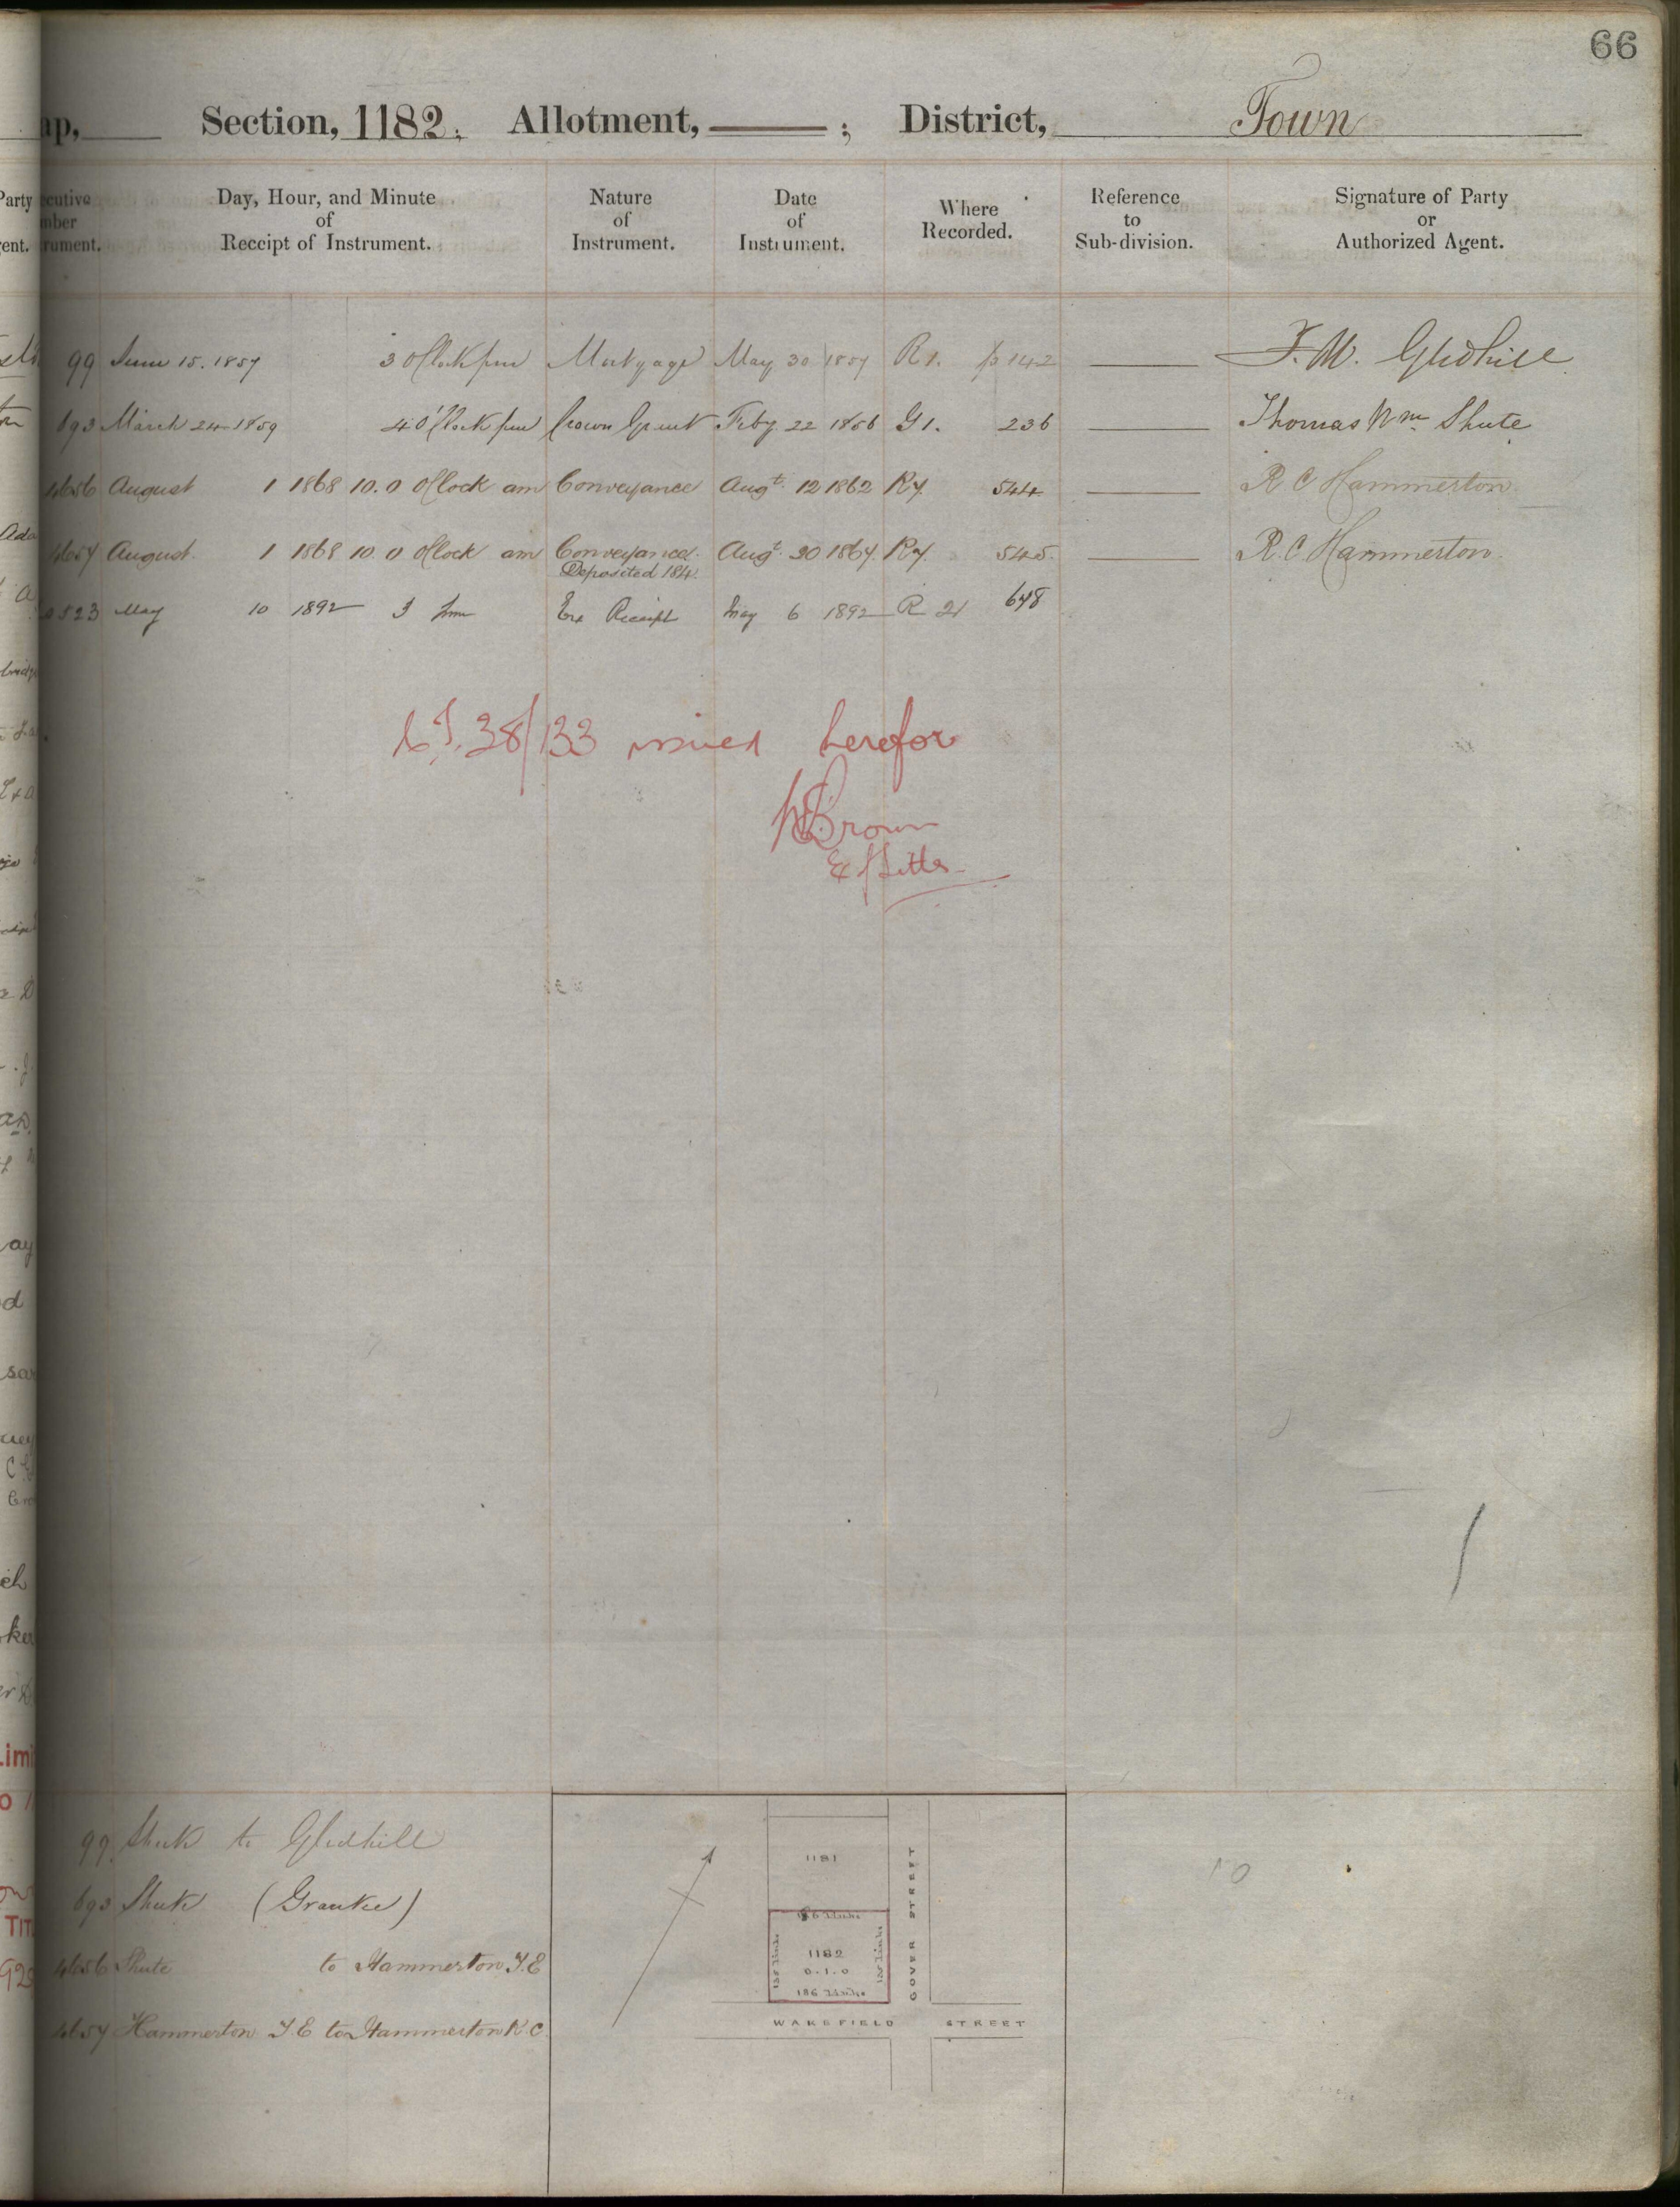 66
Section, 1182. Allotment, ——— ; District, Town
Day, Hour, and Minute of Receipt of Instrument. Nature of Instrument. Date of Instrument. Where Recorded. Reference to Sub-division. Signature of Party or Authorized Agent.
99 June 15. 1857 3 O'Clock pm Mortgage May 30 1857 R 1. p 142 ——— F. W. Gledhill
693 March 24 1859 4 O'Clock pm Crown Grant Feby. 22 1856 G 1. 236 ——— Thomas Wm Shute
4656 August 1 1868 10.0 O'Clock am Conveyance Augt. 12 1862 R 7. 544 ——— R C Hammerton
4657 August. 1 1868 10.0 O'Clock am Conveyance. Augt. 30 1867. R 7. 545. ——— R. C. Hammerton.
Deposited 184.
523 May 10 1892 3 pm Ex Receipt May 6 1892 R 21 648
C.T. 38/133 issued herefor
Brown
99. Shute to Gledhill
693 Shute (Grantee)
4656 Shute to Hammerton T. E
4657 Hammerton T E to Hammerton R C.
1181
186 Links
135 Links
1182
0.1.0
135 Links
186 Links
COVER STREET
WAKEFIELD STREET
10